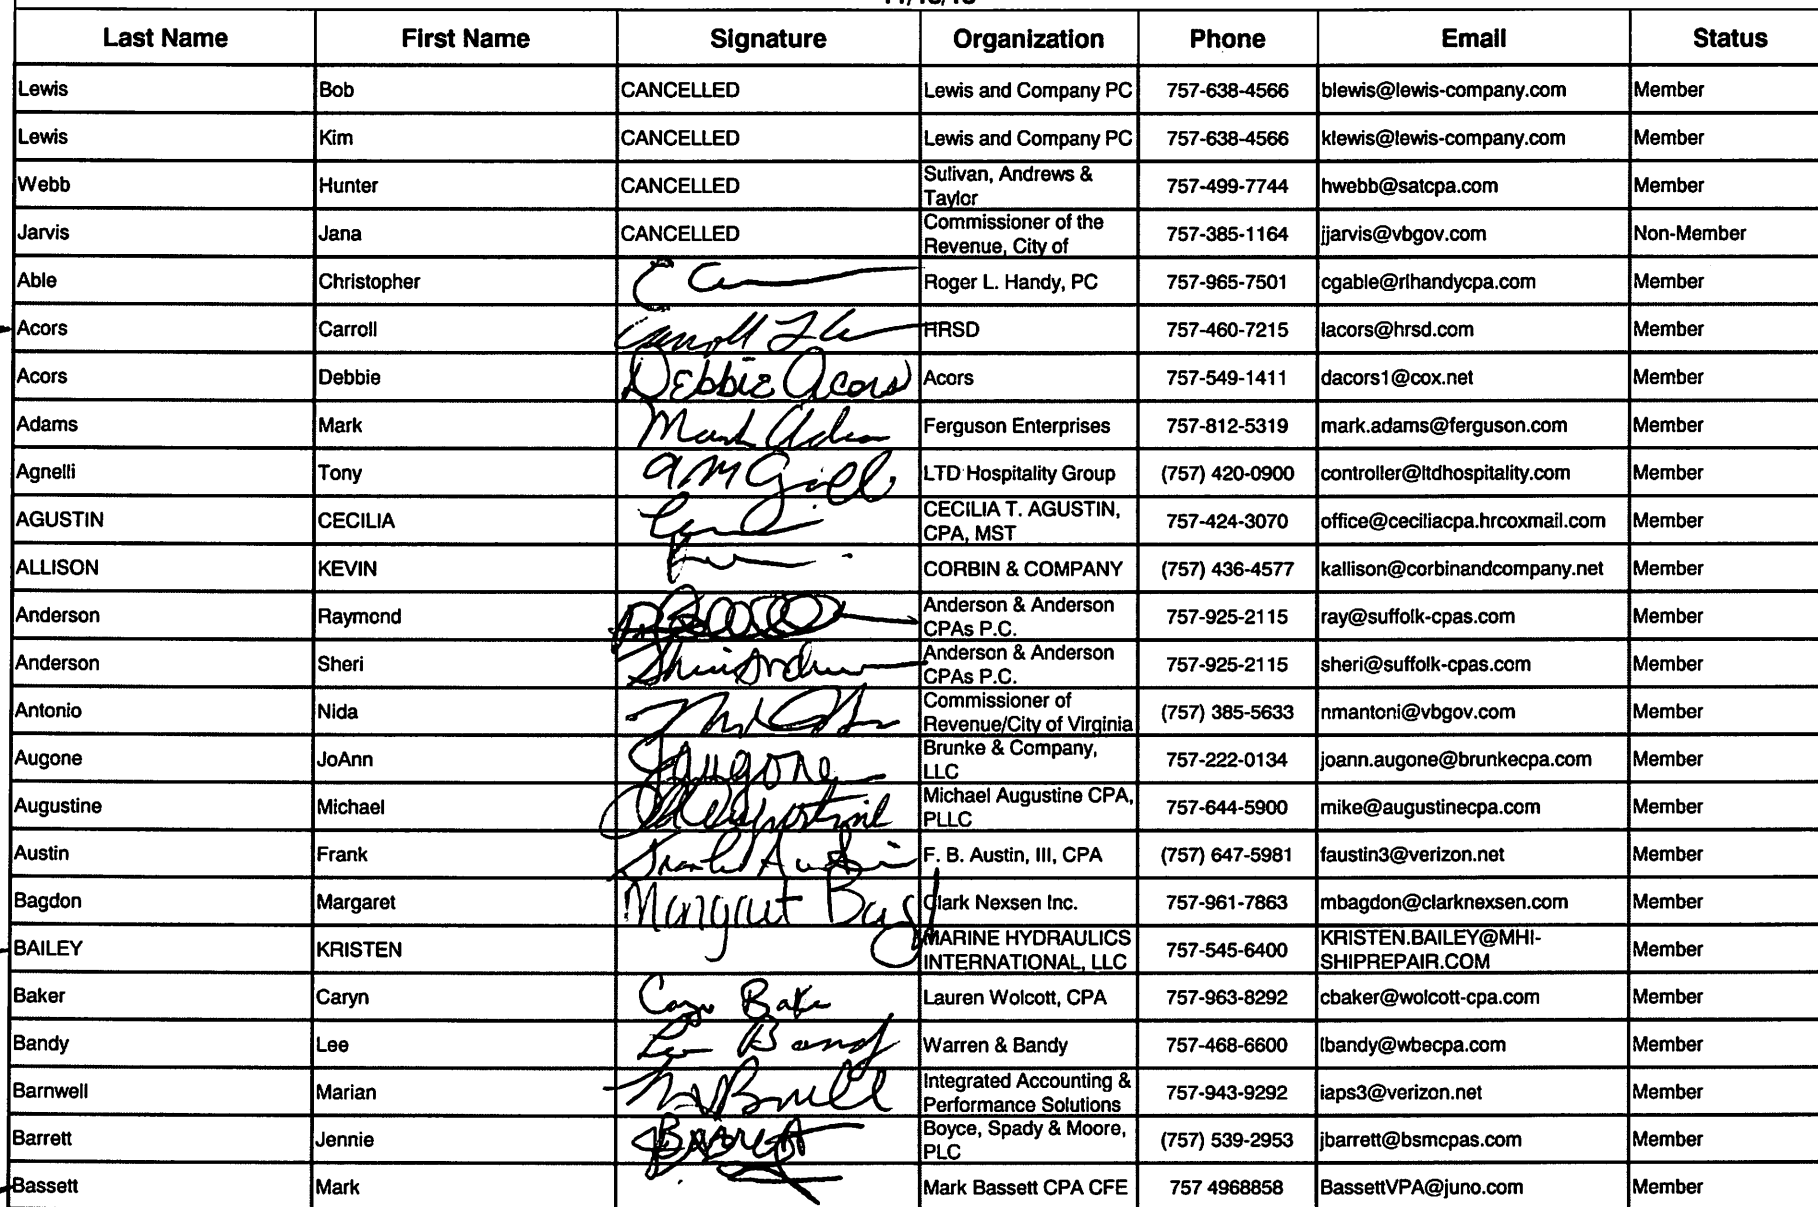 Last Name First Name Signature Organization Phone Email Status
Lewis Bob CANCELLED Lewis and Company PC 757-638-4566 blewis@lewis-company.com Member
Lewis Kim CANCELLED Lewis and Company PC 757-638-4566 klewis@lewis-company.com Member
Webb Hunter CANCELLED Sulivan, Andrews &
Taylor 757-499-7744 hwebb@satcpa.com Member
Jarvis Jana CANCELLED Commissioner of the
Revenue, City of 757-385-1164 jjarvis@vbgov.com Non-Member
Able Christopher Roger L. Handy, PC 757-965-7501 cgable@rlhandycpa.com Member
Acors Carroll Carroll HRSD 757-460-7215 lacors@hrsd.com Member
Acors Debbie Debbie Acors Acors 757-549-1411 dacors1@cox.net Member
Adams Mark Mark Adams Ferguson Enterprises 757-812-5319 mark.adams@ferguson.com Member
Agnelli Tony LTD Hospitality Group (757) 420-0900 controller@ltdhospitality.com Member
AGUSTIN CECILIA CECILIA T. AGUSTIN,
CPA, MST 757-424-3070 office@ceciliacpa.hrcoxmail.com Member
ALLISON KEVIN CORBIN & COMPANY (757) 436-4577 kallison@corbinandcompany.net Member
Anderson Raymond Anderson & Anderson
CPAs P.C. 757-925-2115 ray@suffolk-cpas.com Member
Anderson Sheri Anderson & Anderson
CPAs P.C. 757-925-2115 sheri@suffolk-cpas.com Member
Antonio Nida Commissioner of
Revenue/City of Virginia (757) 385-5633 nmantoni@vbgov.com Member
Augone JoAnn JAugone Brunke & Company,
LLC 757-222-0134 joann.augone@brunkecpa.com Member
Augustine Michael Michael Augustine CPA,
PLLC 757-644-5900 mike@augustinecpa.com Member
Austin Frank Frank Austin F. B. Austin, III, CPA (757) 647-5981 faustin3@verizon.net Member
Bagdon Margaret Margaret Bagd Clark Nexsen Inc. 757-961-7863 mbagdon@clarknexsen.com Member
BAILEY KRISTEN MARINE HYDRAULICS
INTERNATIONAL, LLC 757-545-6400 KRISTEN.BAILEY@MHI-
SHIPREPAIR.COM Member
Baker Caryn Caryn Baker Lauren Wolcott, CPA 757-963-8292 cbaker@wolcott-cpa.com Member
Bandy Lee Lee Bandy Warren & Bandy 757-468-6600 lbandy@wbecpa.com Member
Barnwell Marian Integrated Accounting &
Performance Solutions 757-943-9292 iaps3@verizon.net Member
Barrett Jennie JBarrett Boyce, Spady & Moore,
PLC (757) 539-2953 jbarrett@bsmcpas.com Member
Bassett Mark Mark Bassett CPA CFE 757 4968858 BassettVPA@juno.com Member